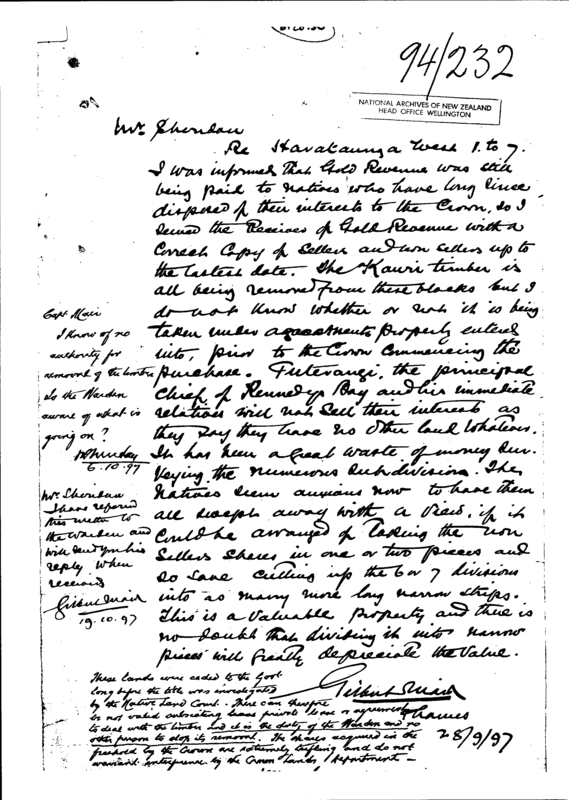 94/232
NATIONAL ARCHIVES OF NEW ZEALAND
HEAD OFFICE WELLINGTON
Mr Sheridan
Re Harataunga West 1 to 7.
I was informed that Gold Revenue was still
being paid to natives who have long since
disposed of their interests to the Crown, so I
the Receiver of Gold Revenue with a
Correct Copy of Sellers and non sellers up to
the lastest date. The Kauri timber is
all being removed from these blocks but I
do not know whether or not it is being
taken under agreements properly entered
into, prior to the Crown Commencing the
purchase. the principal
Chief of Kennedys Bay and his immediate
relatives will not sell their interests as
they say they have no other land whatever.
It has been a great waste of money sur-
veying the numerous subdivisions. The
Natives seem anxious now to have them
all swept away with a view, if it
could be arranged of taking the non
Sellers shares in one or two pieces and
so save cutting up the 6 or 7 divisions
into as many more long narrow strips.
This is a valuable property and there is
no doubt that dividing it into narrow
pieces will greatly depreciate the value.
Gilbert Mair
Thames
28/9/97
Capt. Mair
I know of no
authority for
removal of the timber
Is the Warden
aware of what is
going on?
P Sheridan
6.10.97
Mr. Sheridan
I have referred
this matter to
the Warden and
will send you his
reply when
received
Gilbert Mair
19.10.97
These lands were ceded to the Govt
long before the title was investigated
by the Native Land Court. There can therefore
be no valid subsisting private lease or agreement
to deal with the timber and it is the duty of the Warden and no
other person to stop its removal. The shares acquired in the
freehold by the Crown are extremely trifling and do not
warrant interference by the Crown Lands Department